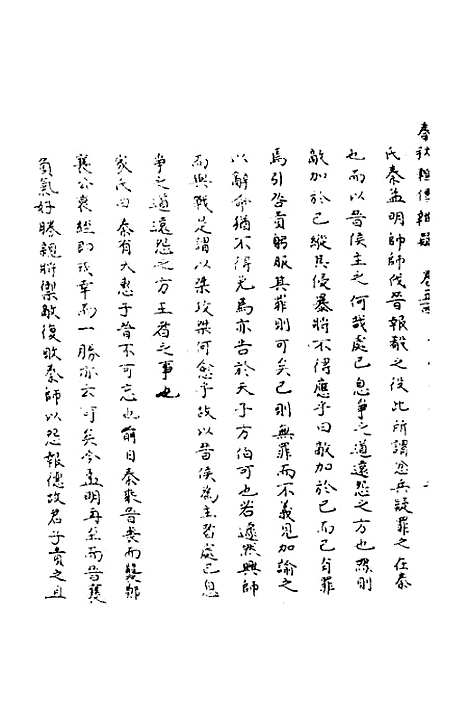 春秋輯傳辨疑 卷三十
氏秦孟明帥師伐晉報殽之役此所謂忿兵疑罪之在秦
也而以晉侯主之何哉處己息爭之道遠怨之方也然則
敵加於己縱其侵暴將不得應乎曰敵加於己而己有罪
焉引咎責躬服其罪則可矣己則無罪而不義見加諭之
以辭命猶不得免焉亦告於天子方伯可也若遽然興師
而與戰是謂以桀攻桀何愈乎故以晉侯為主者處己息
爭之道遠怨之方王者之事也
家氏曰秦有大惠于晉不可忘也前日秦乘晉喪而襲鄭
襄公衰絰即戎幸而一勝亦云可矣今孟明再至而晉襄
負氣好勝親將禦敵復敗秦師以怨報德故君子責之且